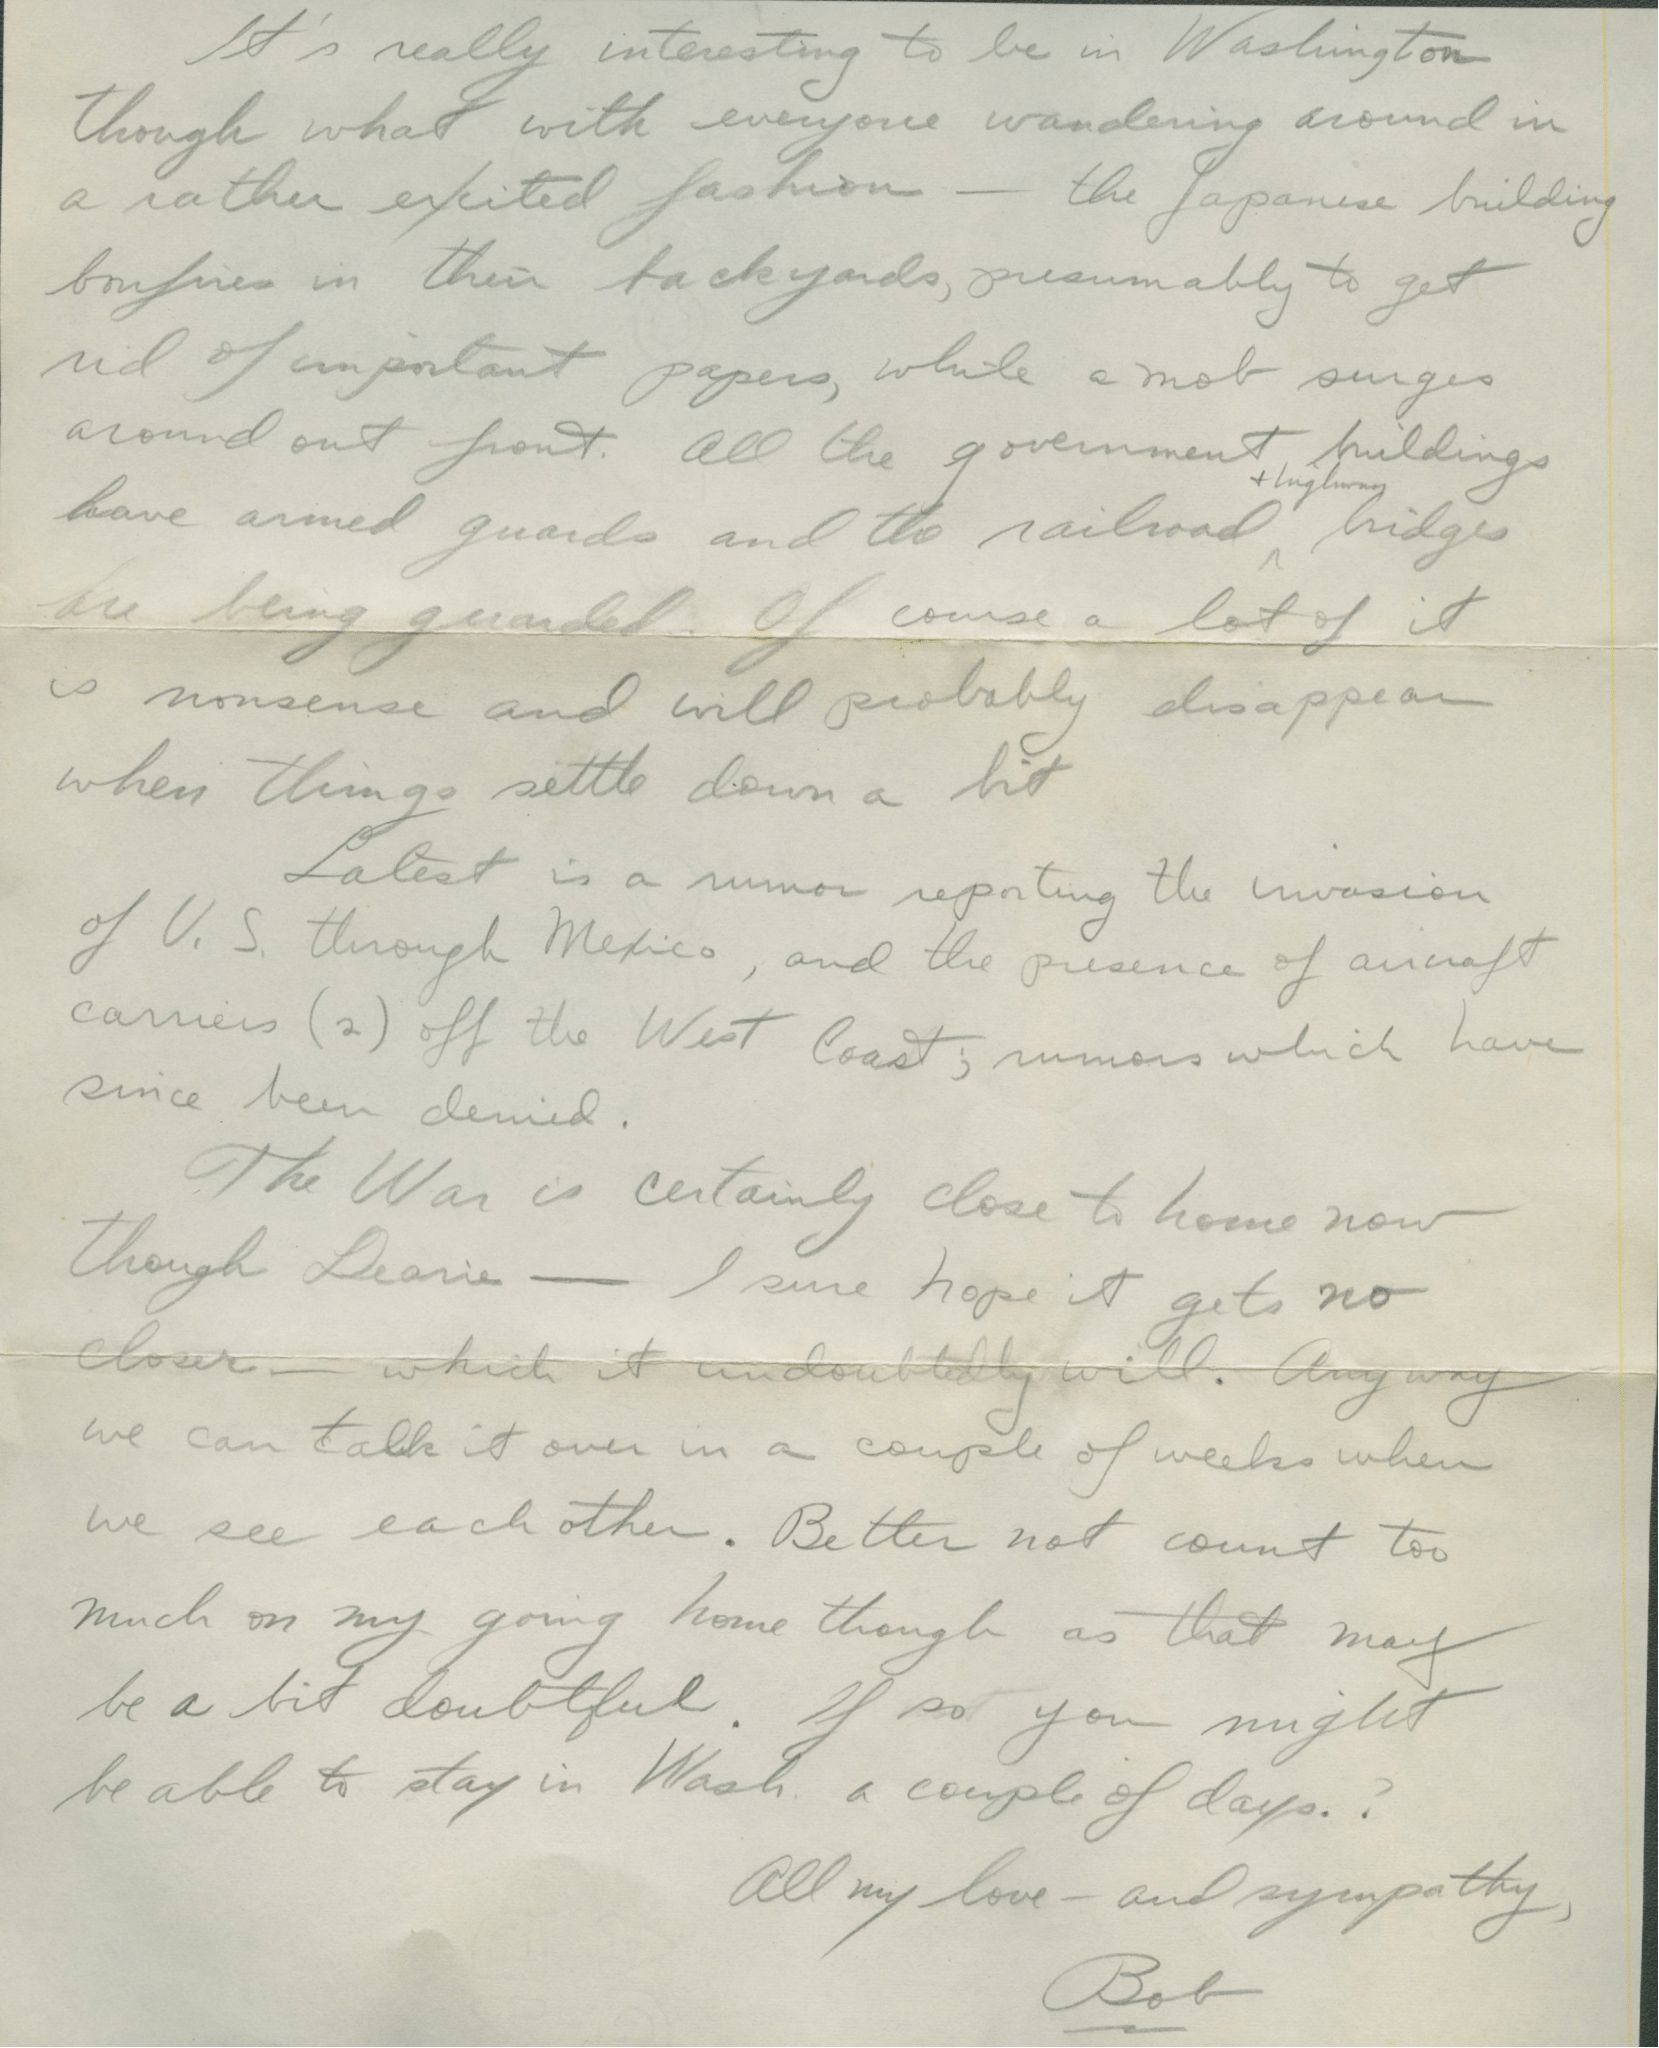 It's really interesting to be in Washington
though what with everyone wandering around in
a rather excited fashion — the Japanese building
bonfires in their backyards, presumably to get
rid of important papers, while a mob surges
around out front. All the government buildings
+ highway
have armed guards and the railroad ^ bridges
are being guarded. Of course a lot of it
is nonsense and will probably disappear
when things settle down a bit
Latest is a rumor reporting the invasion
of U. S. through Mexico, and the presence of aircraft
carriers (2) off the West Coast; rumors which have
since been denied.
The War is certainly close to home now
though Dearie — I sure hope it gets no
closer — which it undoubtedly will. Anyway
we can talk it over in a couple of weeks when
we see each other. Better not count too
much on my going home though as that may
be a bit doubtful. If so you might
be able to stay in Wash. a couple of days.?
All my love – and sympathy,
Bob